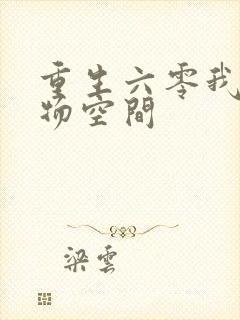 重生六零我
物空間
梁雲